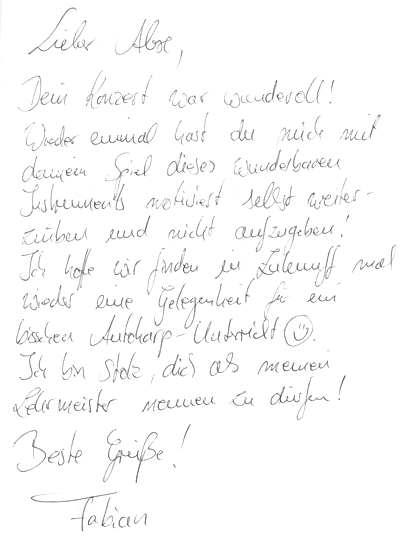 Lieber Alex,
Dein Konzert war wundervoll!
Wieder einmal hast du mich mit
deinem Spiel dieses wunderbaren
Instruments motiviert selbst weiter-
zuüben und nicht aufzugeben!
Ich hoffe wir finden in Zukunft mal
wieder eine Gelegenheit für ein
bisschen Autoharp-Unterricht ☺.
Ich bin stolz, dich als meinen
Lehrmeister nennen zu dürfen!
Beste Grüße!
Fabian